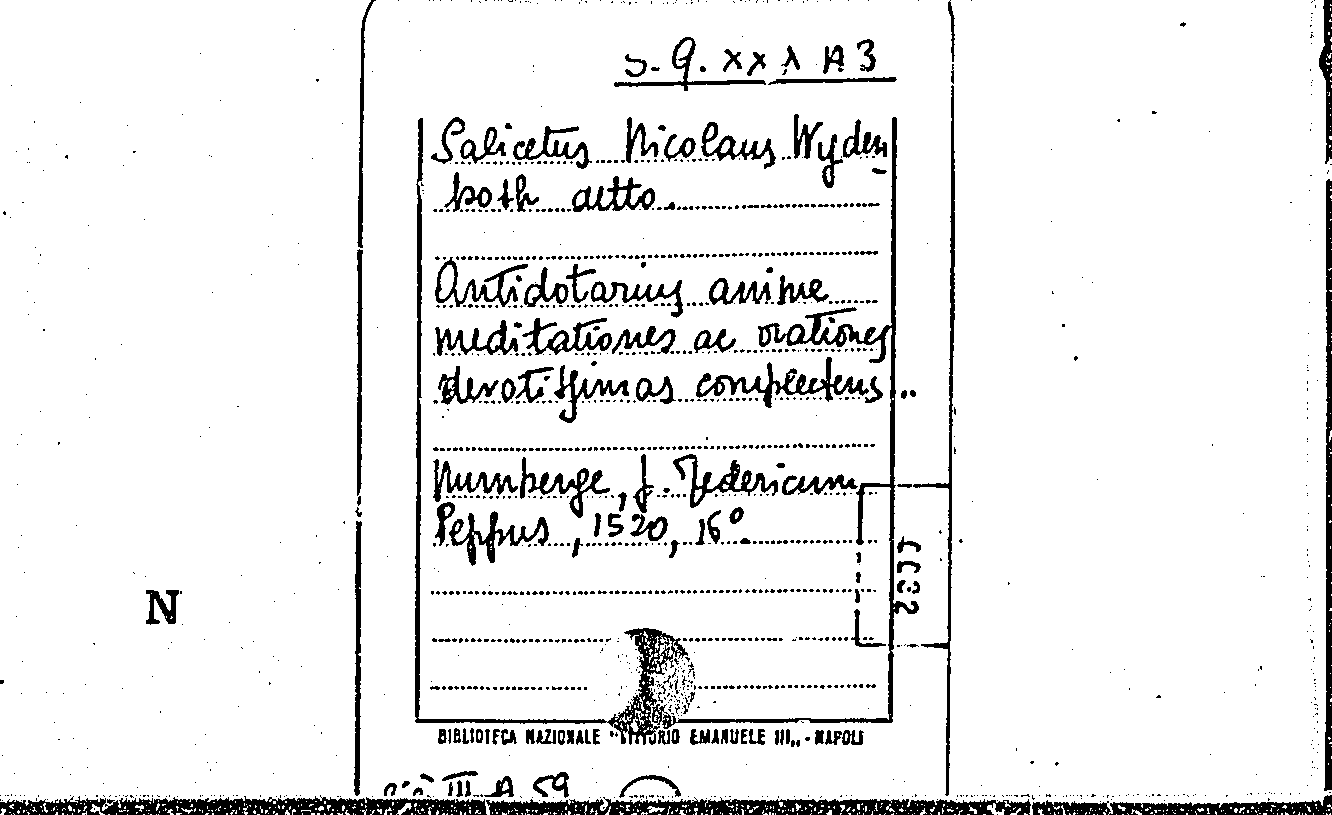 S.Q. XXX A 3
Salicetus Nicolaus Wyden-
both detto.
Antidotarius anime
meditationes ac orationes
devotissimas complectens...
Nurnberge, f. Federicum
Peypus, 1520, 16°.
N
BIBLIOTECA NAZIONALE "VITTORIO EMANUELE III„ - NAPOLI
già III A 59